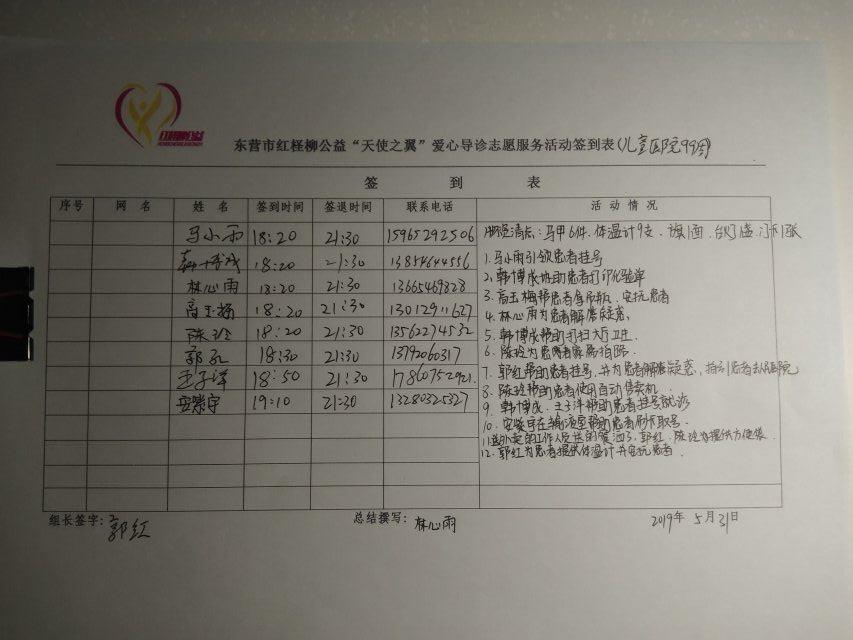 东营市红柽柳公益“天使之翼”爱心导诊志愿服务活动签到表(儿童医院99周)
签 到 表
序号 网 名 姓 名 签到时间 签退时间 联系电话 活 动 情 况
马小雨 18:20 21:30 15965292506 清点:马甲6件、体温计9支、旗1面、台灯1盏、
韩博成 18:20 21:30 13854644556 1.马小雨引领患者挂号
2.韩博成协助患者打印化验单
林心雨 18:20 21:30 13665469828 3.高玉梅帮患者拿吊瓶、安抚患者
高玉梅 18:20 21:30 13012911627 4.林心雨为患者解答疑惑
陈玲 18:20 21:30 13562274532 5.韩博成帮助打扫大厅卫生
郭红 18:30 21:30 13792060317 6.陈玲为患者家属指路
王子洋 18:50 21:30 17860752921 7.郭红帮助患者挂号,并为患者解答疑惑,指引患者去医院
8.陈玲帮助患者使用自动售卖机
安崇宇 19:10 21:30 13280325327 9.韩博成、王子洋帮助患者挂号就诊
10.安崇宇在输液室帮助患者刷卡取号
11.送外卖的工作人员送的餐洒了,郭红、陈玲为提供方便袋
12.郭红为患者提供体温计并安抚患者
组长签字:郭红 总结撰写:林心雨 2019年5月31日